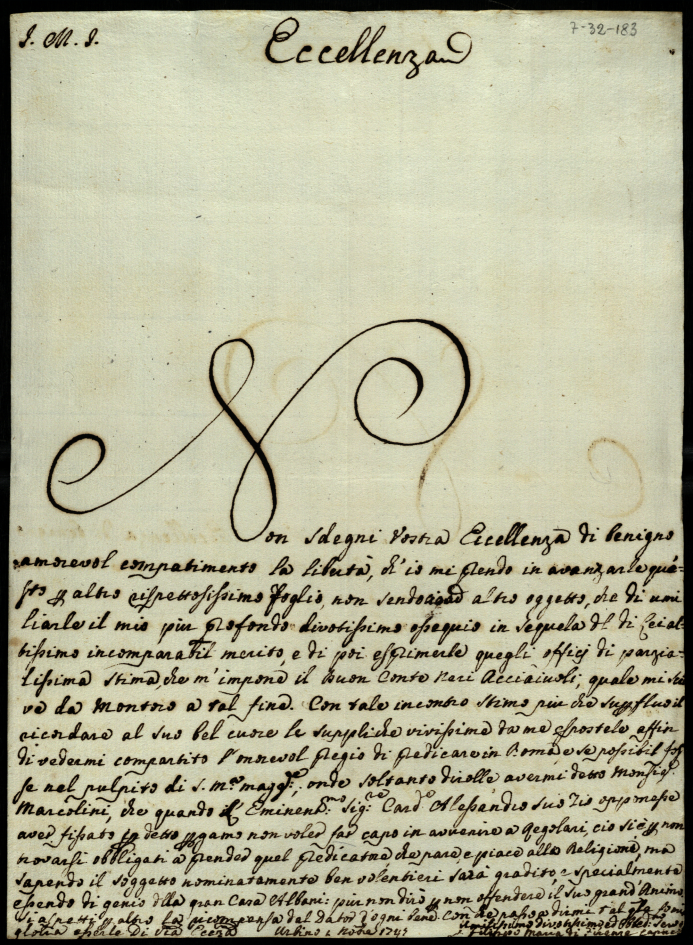 J. M. J.
7-32-183
Eccellenza
Non sdegni Vostra Eccellenza di benigno
amorevol compatimento la libertà, ch'io mi prendo in avanzarle qué-
sto altro rispettosissimo foglio, non sendo altro oggetto, che di umi
liarle il mio più profondo divotissimo ossequio in sequela di Lei al
tissimo incomparabil merito, e di poi esprimerle quegli officj di parzia-
lissima stima, che m'impone il buon Conte Neri Acciaiuoli, quale mi scri
ve da Montoro a tal fine. Con tale incontro stimo più che superfluo il
ricordare al suo bel cuore le suppliche vivissime da me espostele affin
di vedermi compartito l'onorevol pregio di predicare in Roma e se possibil fos
se nel pulpito di S. M. Magg., onde soltanto dirolle avermi detto Monsig.
Marcolini, che quando l'Eminent. Sig. Card. Alessandro suo Zio
aver fissato detto non voler far capo in avvenire a Regolari, ciò si è non
trovarsi obbligati a prender quel Predicatore che pare e piace alla Religione, ma
sapendo il soggetto nominatamente ben volentieri sarà gradito e specialmente
essendo di genio della gran Casa Albani: più non dirò non offendere il suo grand'Animo
altro la ricompensa dal dator d'ogni bene. Con che passo a dirmi
gloria esserle di Vra Eccza Urbino 1745